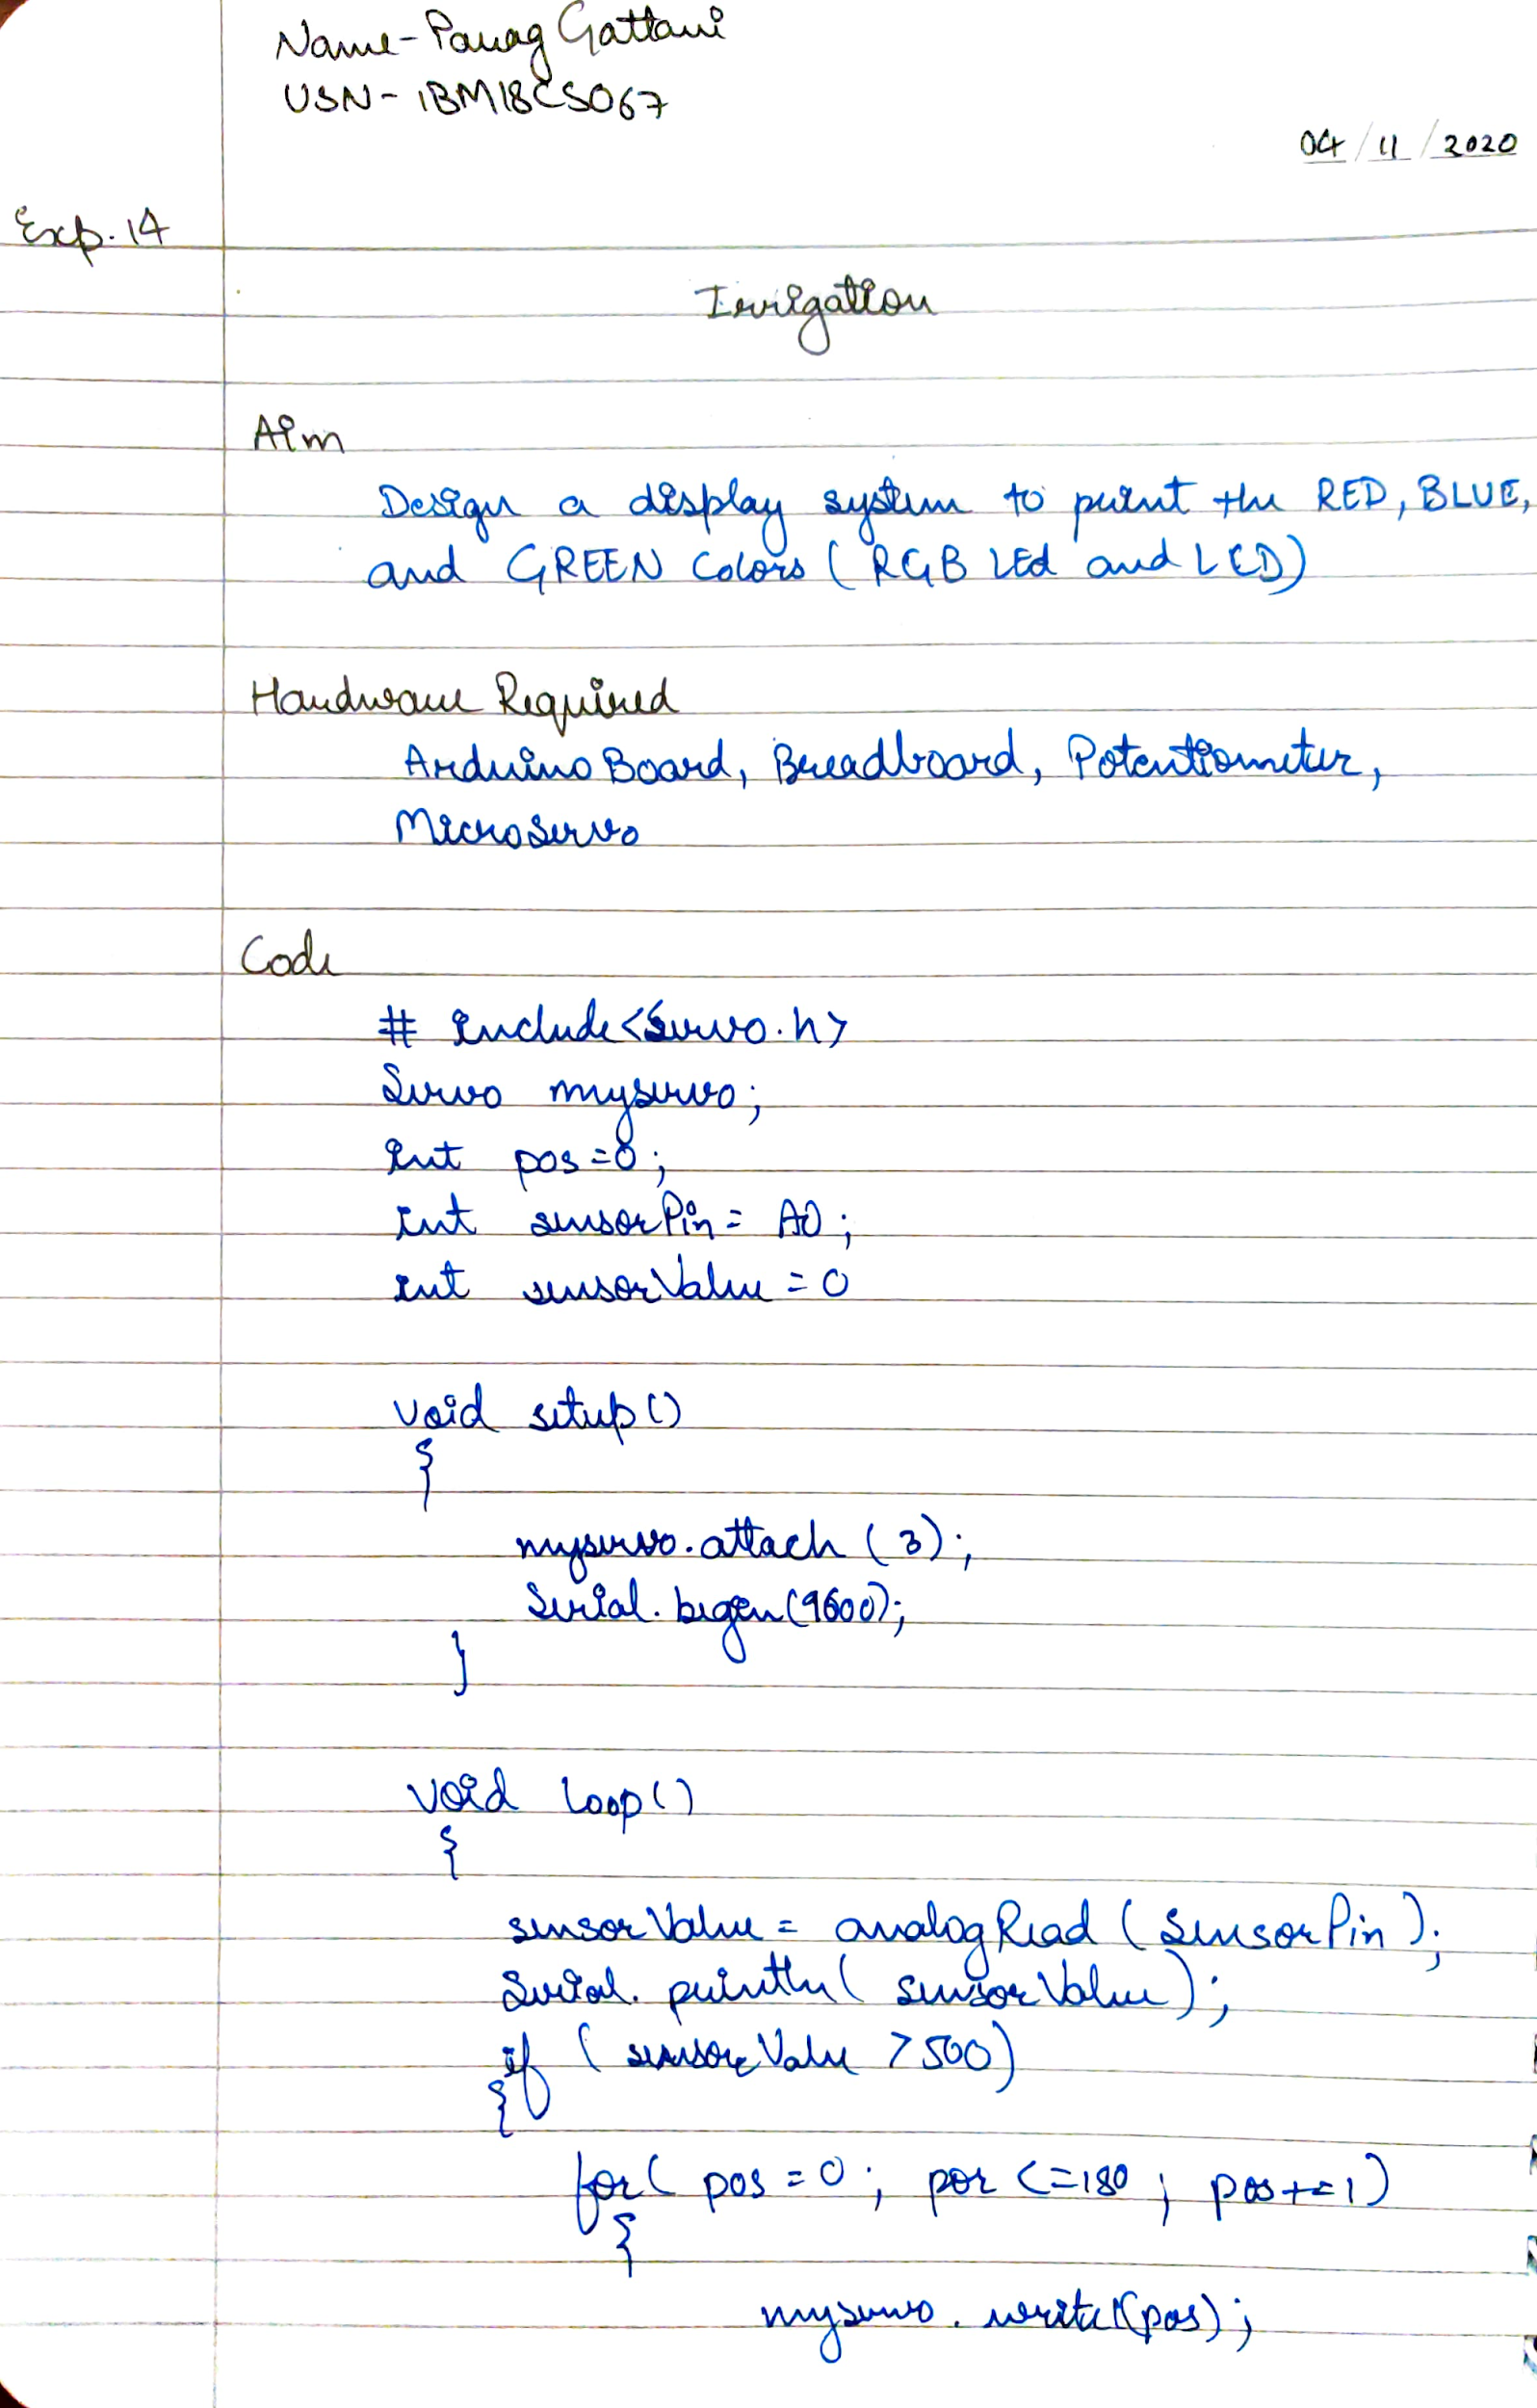 Name - Parag Gattani
USN - 1BM18CS067
04/11/2020
Exp. 14
Irrigation
Aim
Design a display system to print the RED, BLUE,
and GREEN Colors (RGB LEd and LCD)
Hardware Required
Arduino Board, Breadboard, Potentiometer,
MicroServo
Code
# include<Servo.h>
Servo myservo;
int pos=0;
int sensorPin = A0;
int sensorValue = 0
void setup()
{
myservo.attach (3);
Serial.begin(9600);
}
void loop()
{
sensorValue = analogRead (SensorPin);
Serial.println( sensorValue );
if ( sensorValue >500)
{
for( pos =0; por <=180; pos+=1)
{
myservo.write(pos);